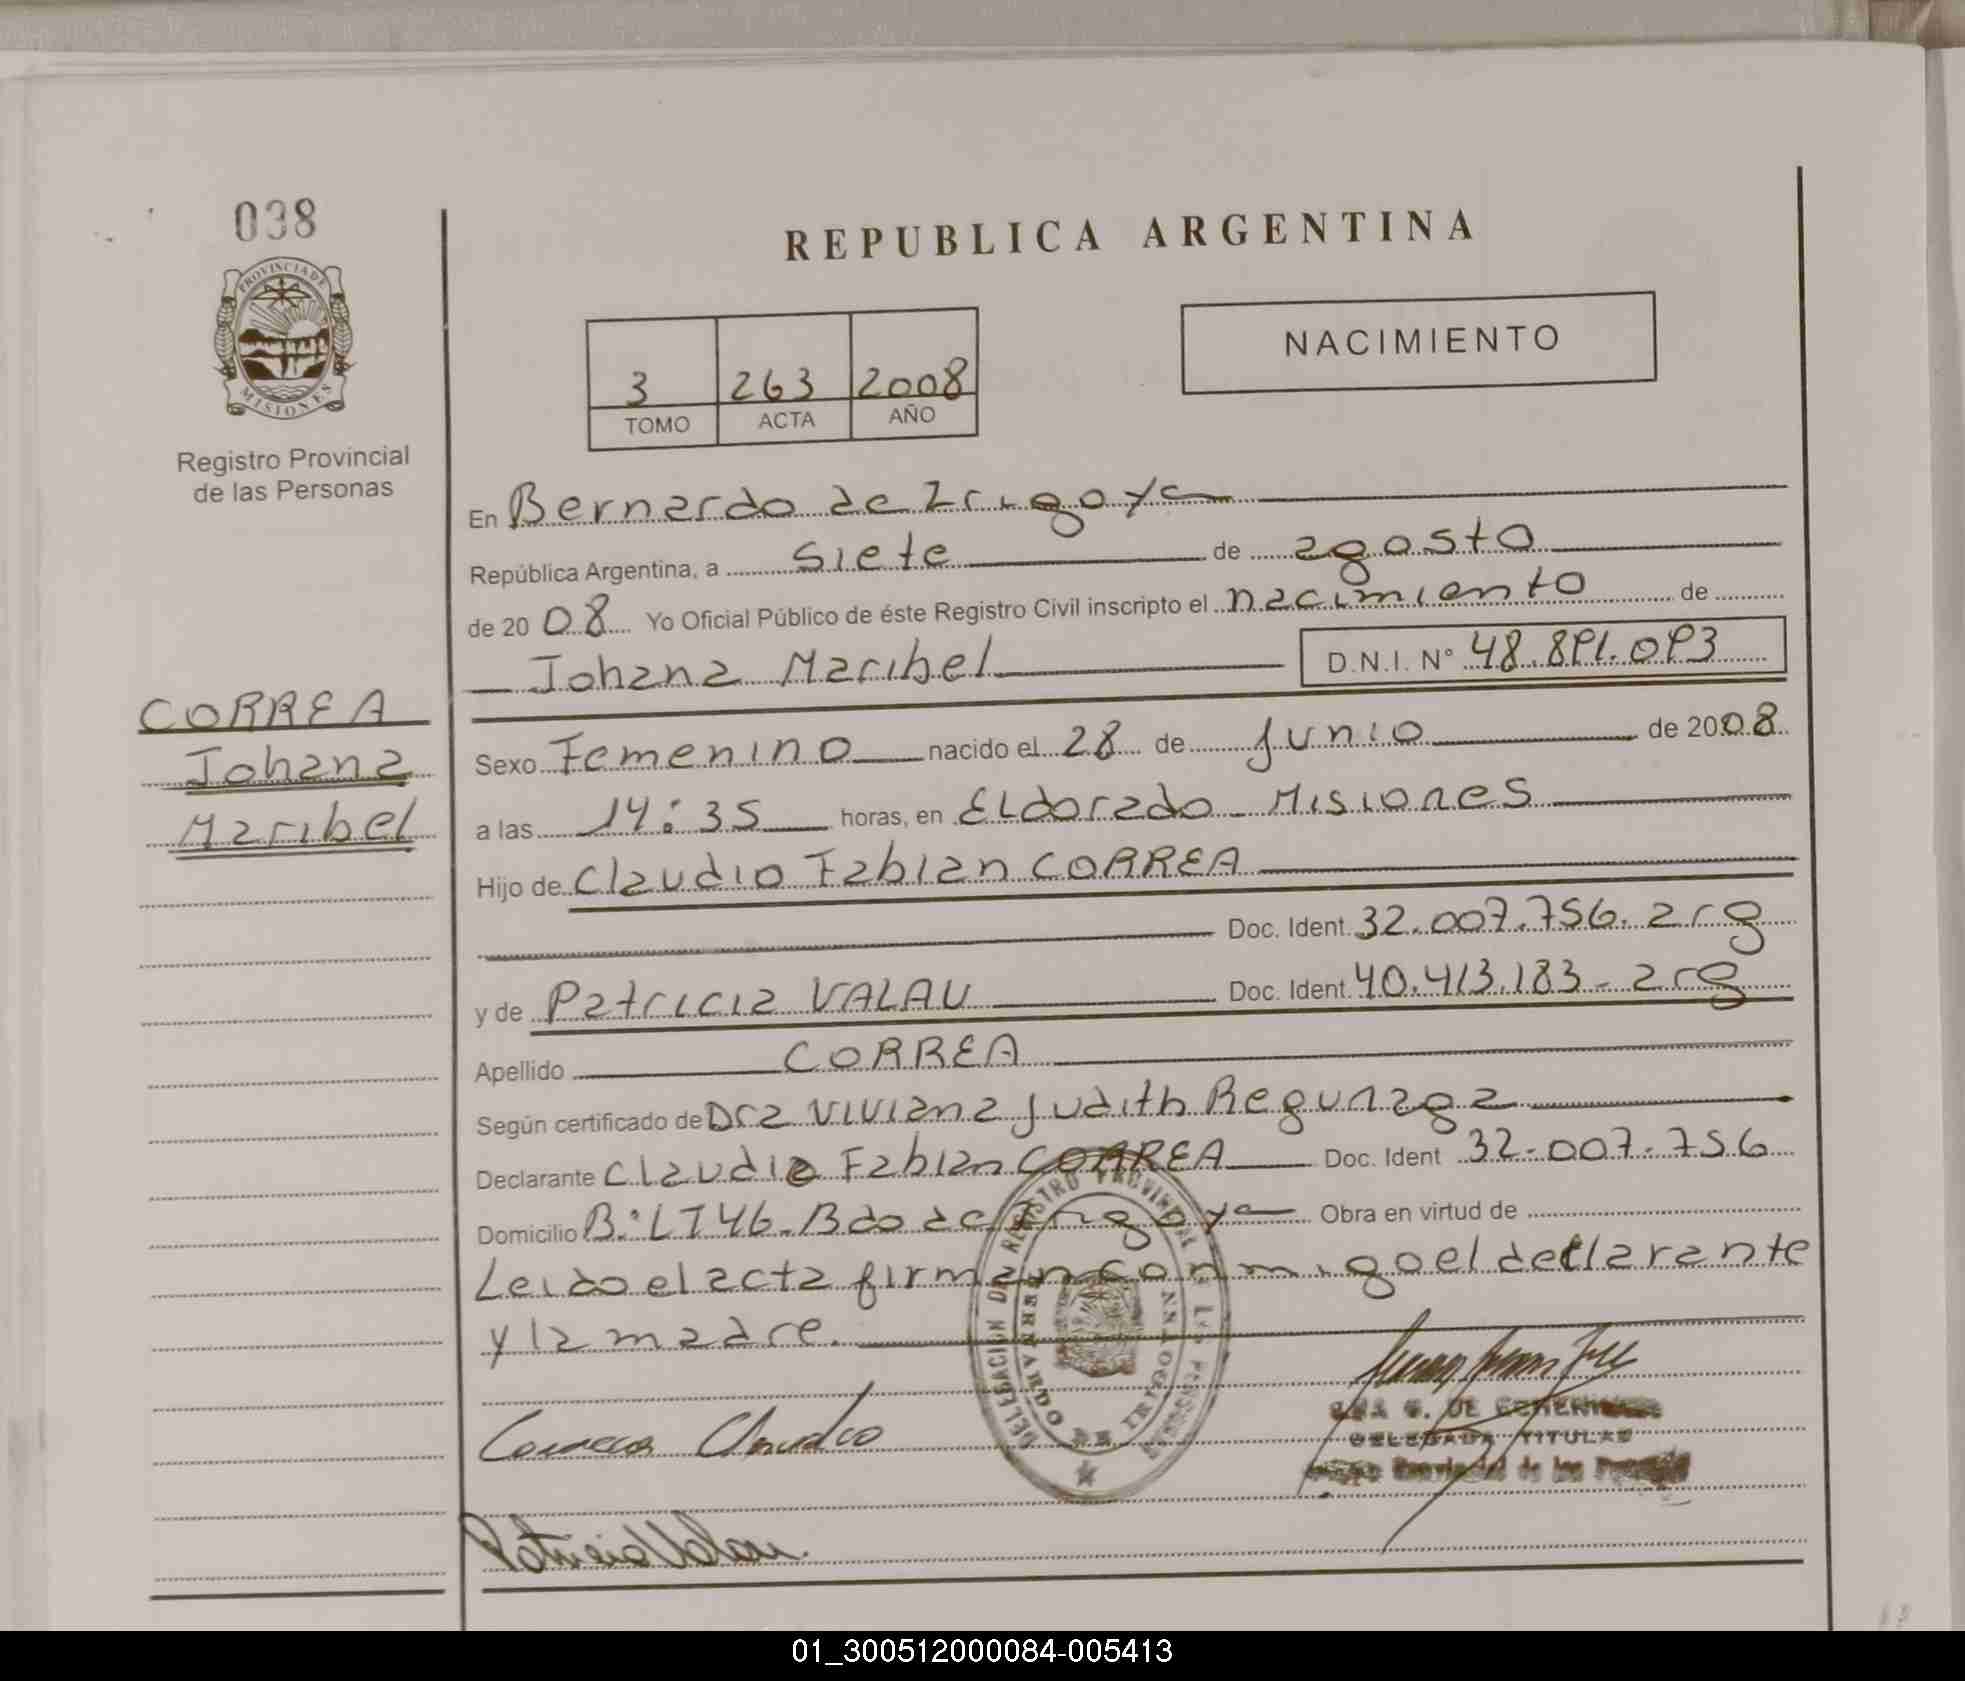 038
REPUBLICA ARGENTINA
PROVINCIA DE
MISIONES
NACIMIENTO
3 263 2008
TOMO ACTA AÑO
Registro Provincial
de las Personas
En Bernardo de Irigoyen
República Argentina, a siete de agosto
de 2008 Yo Oficial Público de éste Registro Civil inscripto el nacimiento de
Johana Maribel D.N.I. N° 48.891.093
CORREA
Johana
Maribel
Sexo Femenino nacido el 28 de junio de 2008
a las 14:35 horas, en Eldorado Misiones
Hijo de Claudio Fabian CORREA
Doc. Ident. 32.007.756. arg
y de Patricia VALAU Doc. Ident. 40.413.183 - arg
Apellido CORREA
Según certificado de Dra Viviana Judith Regunaga
Declarante Claudio Fabian CORREA Doc. Ident 32.007.756
Domicilio B: LT46. Bdo de Irigoyen Obra en virtud de
Leido el acta firman conmigo el declarante
y la madre.
DELEGACION DEL REGISTRO PROVINCIAL DE LAS PERSONAS
BERNARDO DE IRIGOYEN
Correa Claudio
DELEGADA TITULAR
Provincial de las
Patricia Valau
01_300512000084-005413